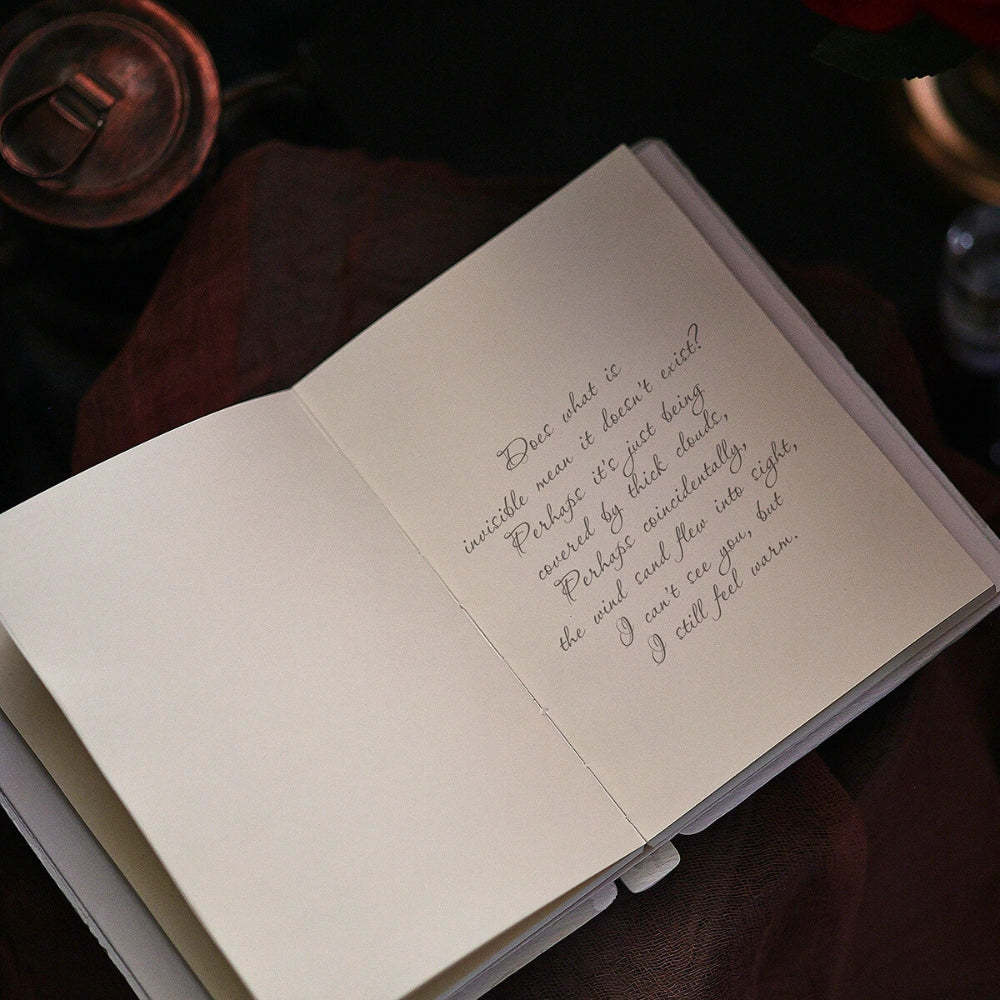 Does what is
invisible mean it doesn't exist?
Perhaps it's just being
covered by thick clouds,
Perhaps coincidentally,
the wind sand flew into sight,
I can't see you, but
I still feel warm.